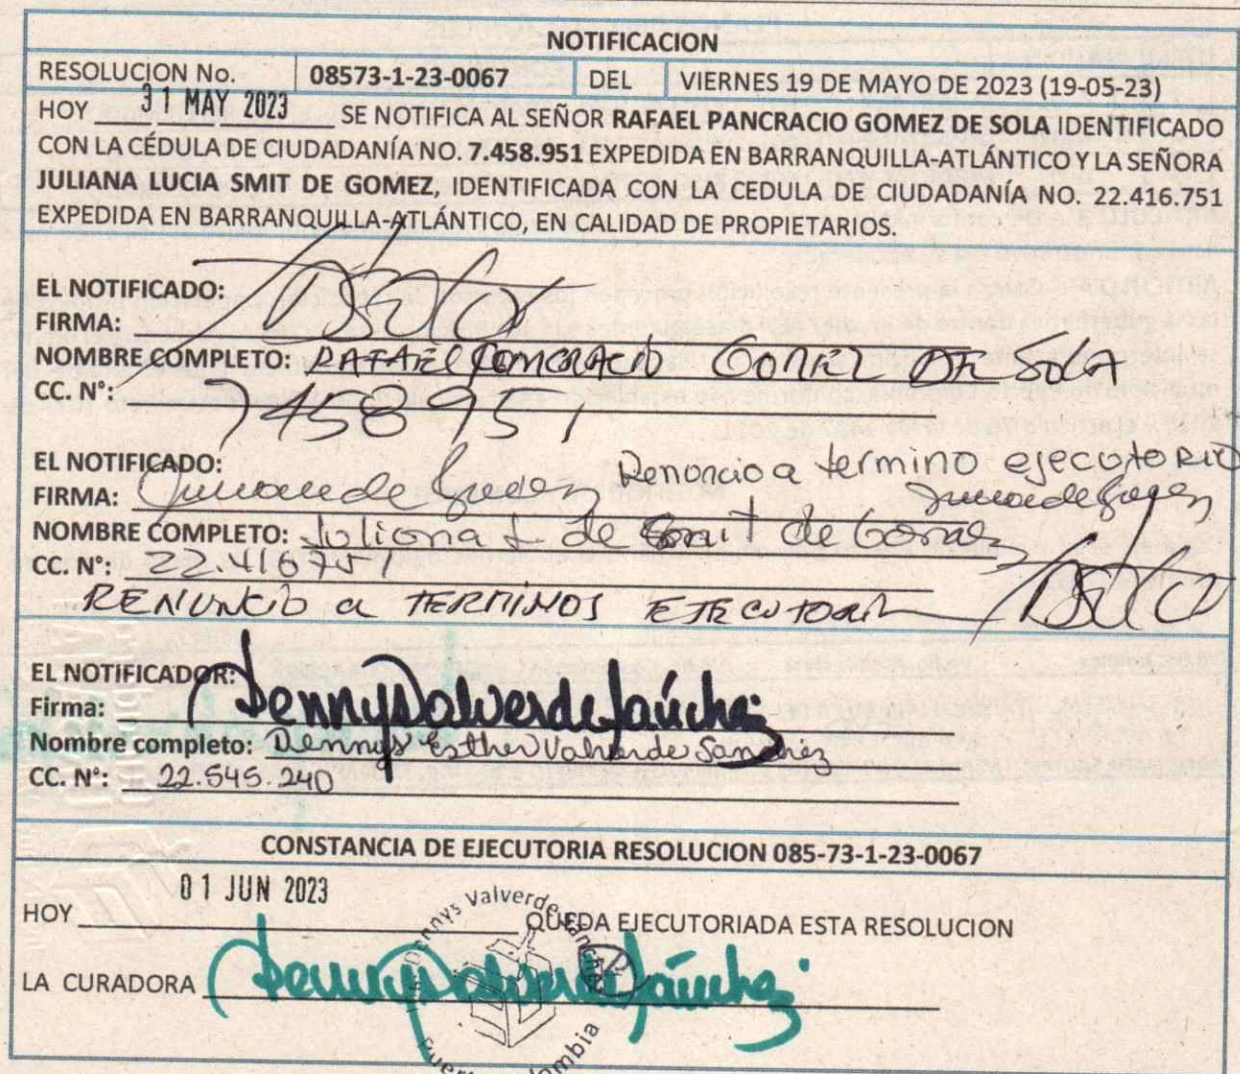 NOTIFICACION
RESOLUCION No. 08573-1-23-0067 DEL VIERNES 19 DE MAYO DE 2023 (19-05-23)
HOY 31 MAY 2023 SE NOTIFICA AL SEÑOR RAFAEL PANCRACIO GOMEZ DE SOLA IDENTIFICADO
CON LA CÉDULA DE CIUDADANÍA NO. 7.458.951 EXPEDIDA EN BARRANQUILLA-ATLÁNTICO Y LA SEÑORA
JULIANA LUCIA SMIT DE GOMEZ, IDENTIFICADA CON LA CEDULA DE CIUDADANÍA NO. 22.416.751
EXPEDIDA EN BARRANQUILLA-ATLÁNTICO, EN CALIDAD DE PROPIETARIOS.
EL NOTIFICADO:
FIRMA:
NOMBRE COMPLETO: RAFAEL PANCRACIO GOMEZ DE SOLA
CC. N°: 7458951
EL NOTIFICADO: Renuncio a termino ejecutorio
FIRMA:
NOMBRE COMPLETO: Juliana L de Smit de Gomez
CC. N°: 22.416751
RENUNCIO a TERMINOS EJECUTORIA
EL NOTIFICADOR:
Firma: Dennys Valverde Sánchez
Nombre completo: Dennys Esther Valverde Sanchez
CC. N°: 22.545.240
CONSTANCIA DE EJECUTORIA RESOLUCION 085-73-1-23-0067
HOY 01 JUN 2023 QUEDA EJECUTORIADA ESTA RESOLUCION
LA CURADORA Dennys Valverde Sánchez
Dennys Valverde Sanchez